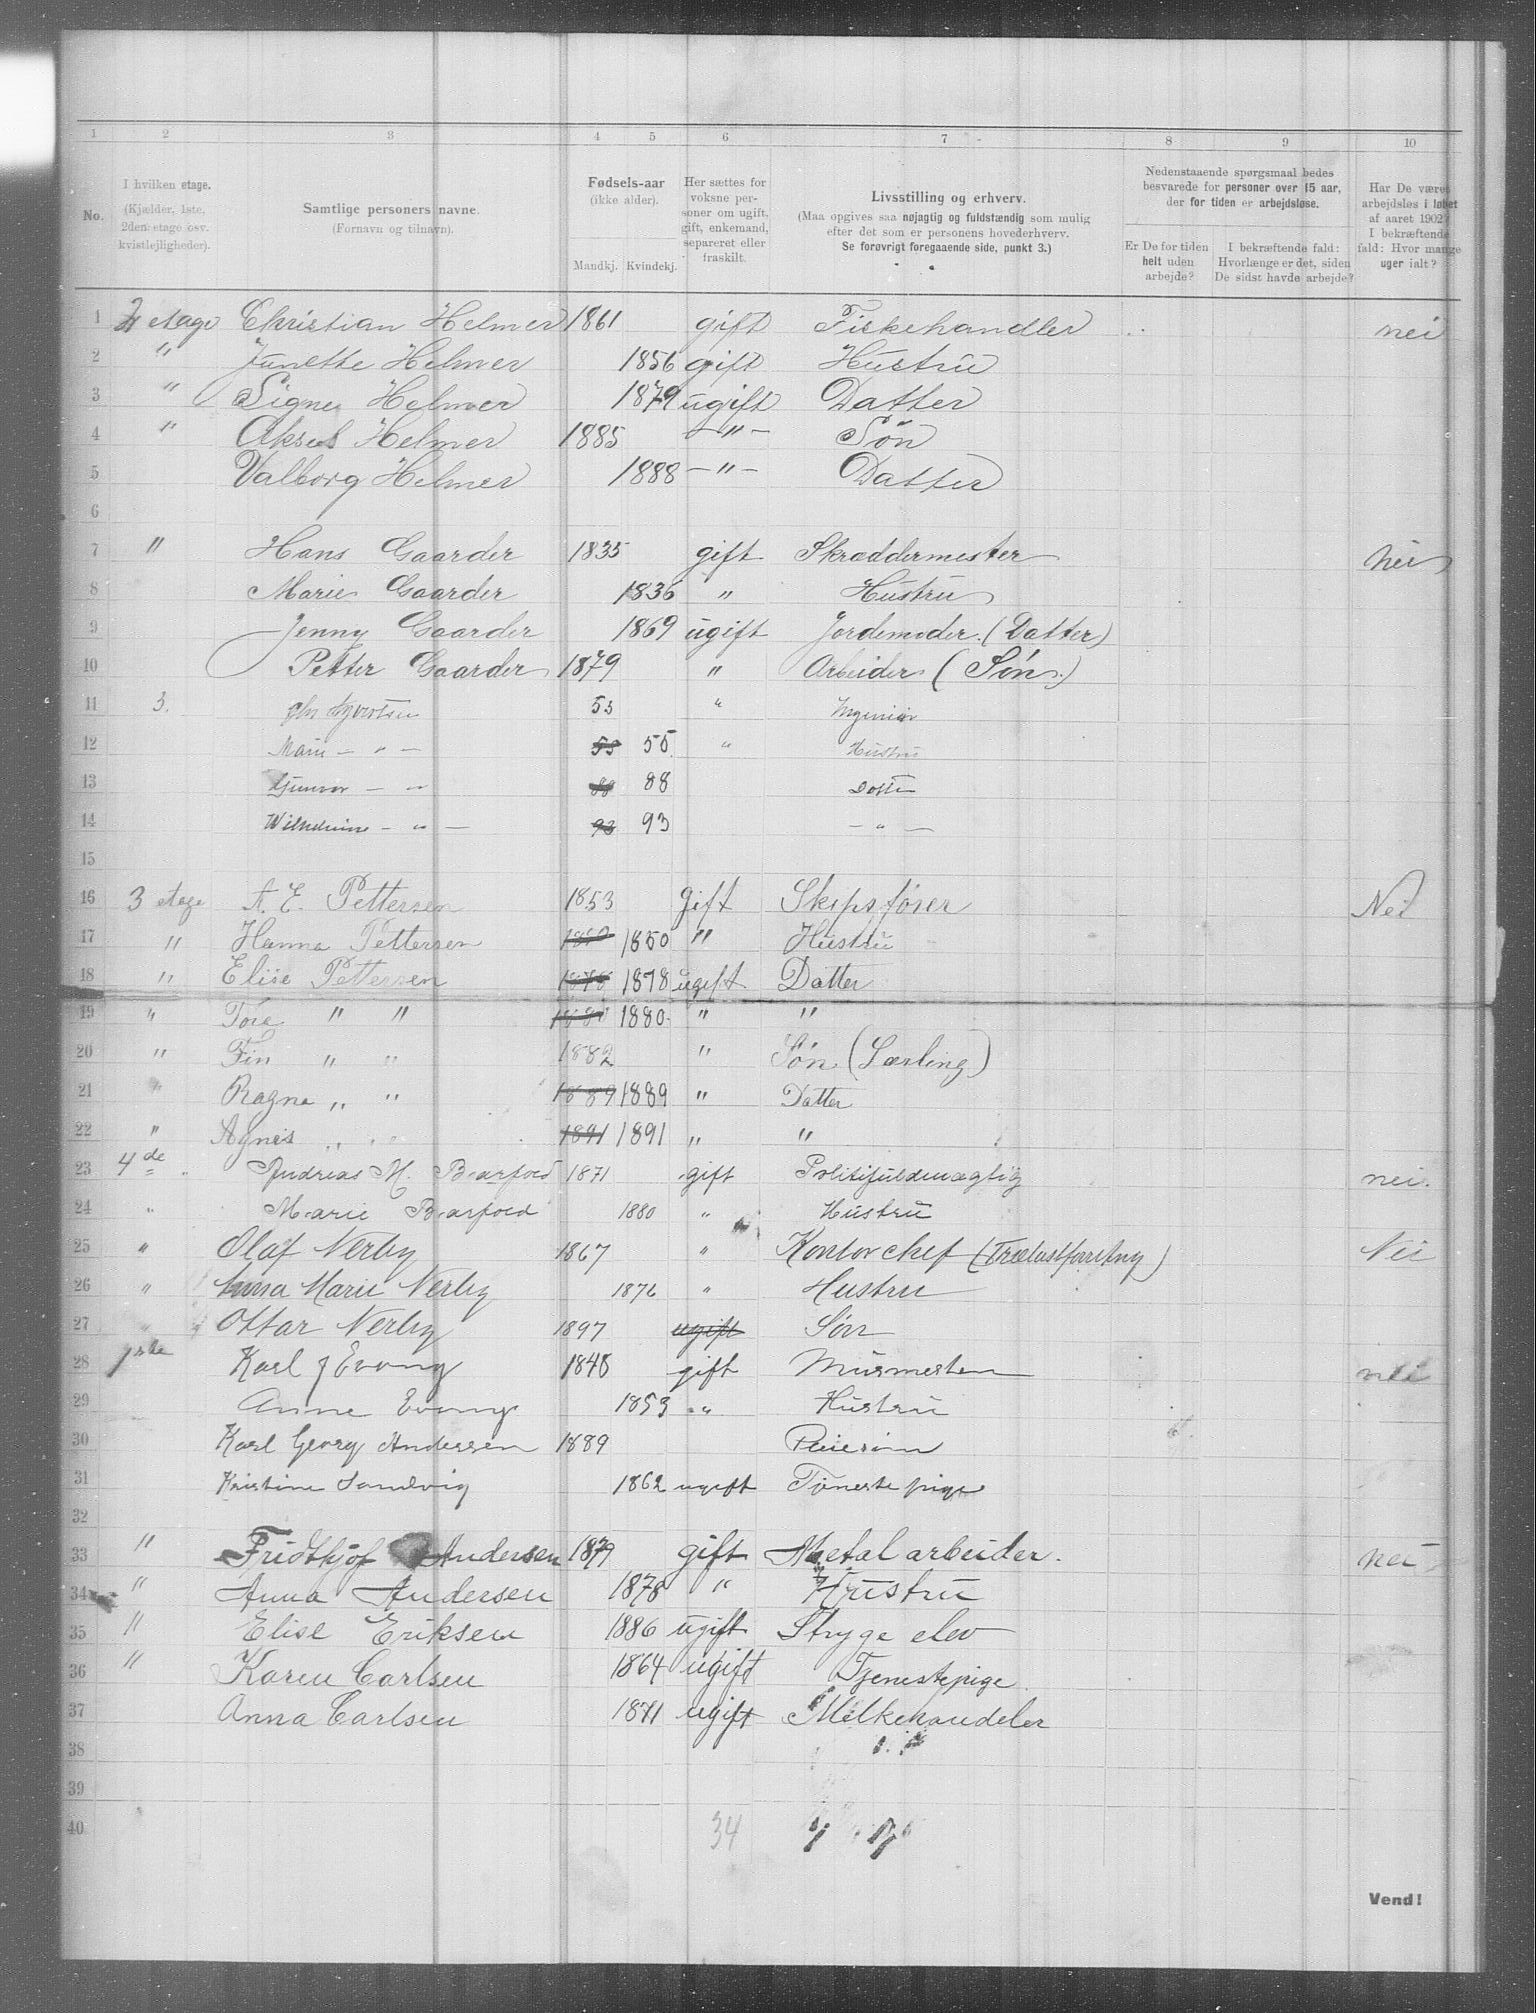 1 2 3 4 5 6 7 8 9 10
No.
I hvilken etage. (Kjælder, 1ste, 2den etage osv. kvistlejligheder).
Samtlige personers navne. (Fornavn og tilnavn).
Fødsels-aar (ikke alder). Mandkj. Kvindekj.
Her sættes for voksne personer om ugift, gift, enkemand, separeret eller fraskilt.
Livsstilling og erhverv. (Maa opgives saa nøjagtig og fuldstændig som mulig efter det som er personens hovederhverv. Se forøvrigt foregaaende side, punkt 3.)
Nedenstaaende spørgsmaal bedes besvarede for personer over 15 aar, der for tiden er arbejdsløse.
Er De for tiden helt uden arbejde?
I bekræftende fald: Hvorlænge er det, siden De sidst havde arbejde?
Har De været arbejdsløs i løbet af aaret 1902? I bekræftende fald: Hvor mange uger ialt?
1 2 etage Christian Helmer 1861 gift Fiskehandler nei
2 " Junette Helmer 1856 gift Hustru
3 " Signe Helmer 1879 ugift Datter
4 " Aksel Helmer 1885 -"- Søn
5 Valborg Helmer 1888 -"- Datter
6
7 " Hans Gaarder 1835 gift Skræddermester nei
8 Marie Gaarder 1836 " Hustru
9 Jenny Gaarder 1869 ugift Jordemoder (Datter)
10 Petter Gaarder 1879 " Arbeider (Søn)
11 3. 53 " Ingeniør
12 Marie - " - 55 55 " Hustru
13 Gunvor - " 88 88 Datter
14 Wilhelmine - " - 93 93 - " -
15
16 3 etage A. E. Pettersen 1853 Gift Skipsfører Nei
17 " Hanna Pettersen 1850 " Hustru
18 " Elise Pettersen 1878 1878 ugift Datter
19 " Tore " " 1880 1880 " "
20 " Fin " " 1882 " Søn (Lærling)
21 " Ragna " " 1889 1889 " Datter
22 " Agnes " " 1891 1891 " "
23 4de " Andreas M. Barfoed 1871 gift Politifuldmægtig nei.
24 " Marie Barfoed 1880 " Hustru
25 " Olaf Nerby 1867 " Kontorchef (Trælastforretning) Nei
26 " Anna Marie Nerby 1876 " Hustru
27 " Ottar Nerby 1897 ugift Søn
28 1ste Karl J Evang 1848 gift Murmester nei
29 Anne Evang 1853 " Hustru
30 Karl Georg Andersen 1889 Pleiesøn
31 Kristine Sandvig 1862 ugift Tjeneste pige
32
33 " Fridthjof Andersen 1879 gift Metalarbeider. nei
34 " Anna Andersen 1878 " Hustru
35 " Elise Eriksen 1886 ugift Stryge elev
36 " Karen Carlsen 1864 ugift Tjenestepige
37 Anna Carlsen 1871 ugift Melkehandeler
38
39
40 34
Vend!